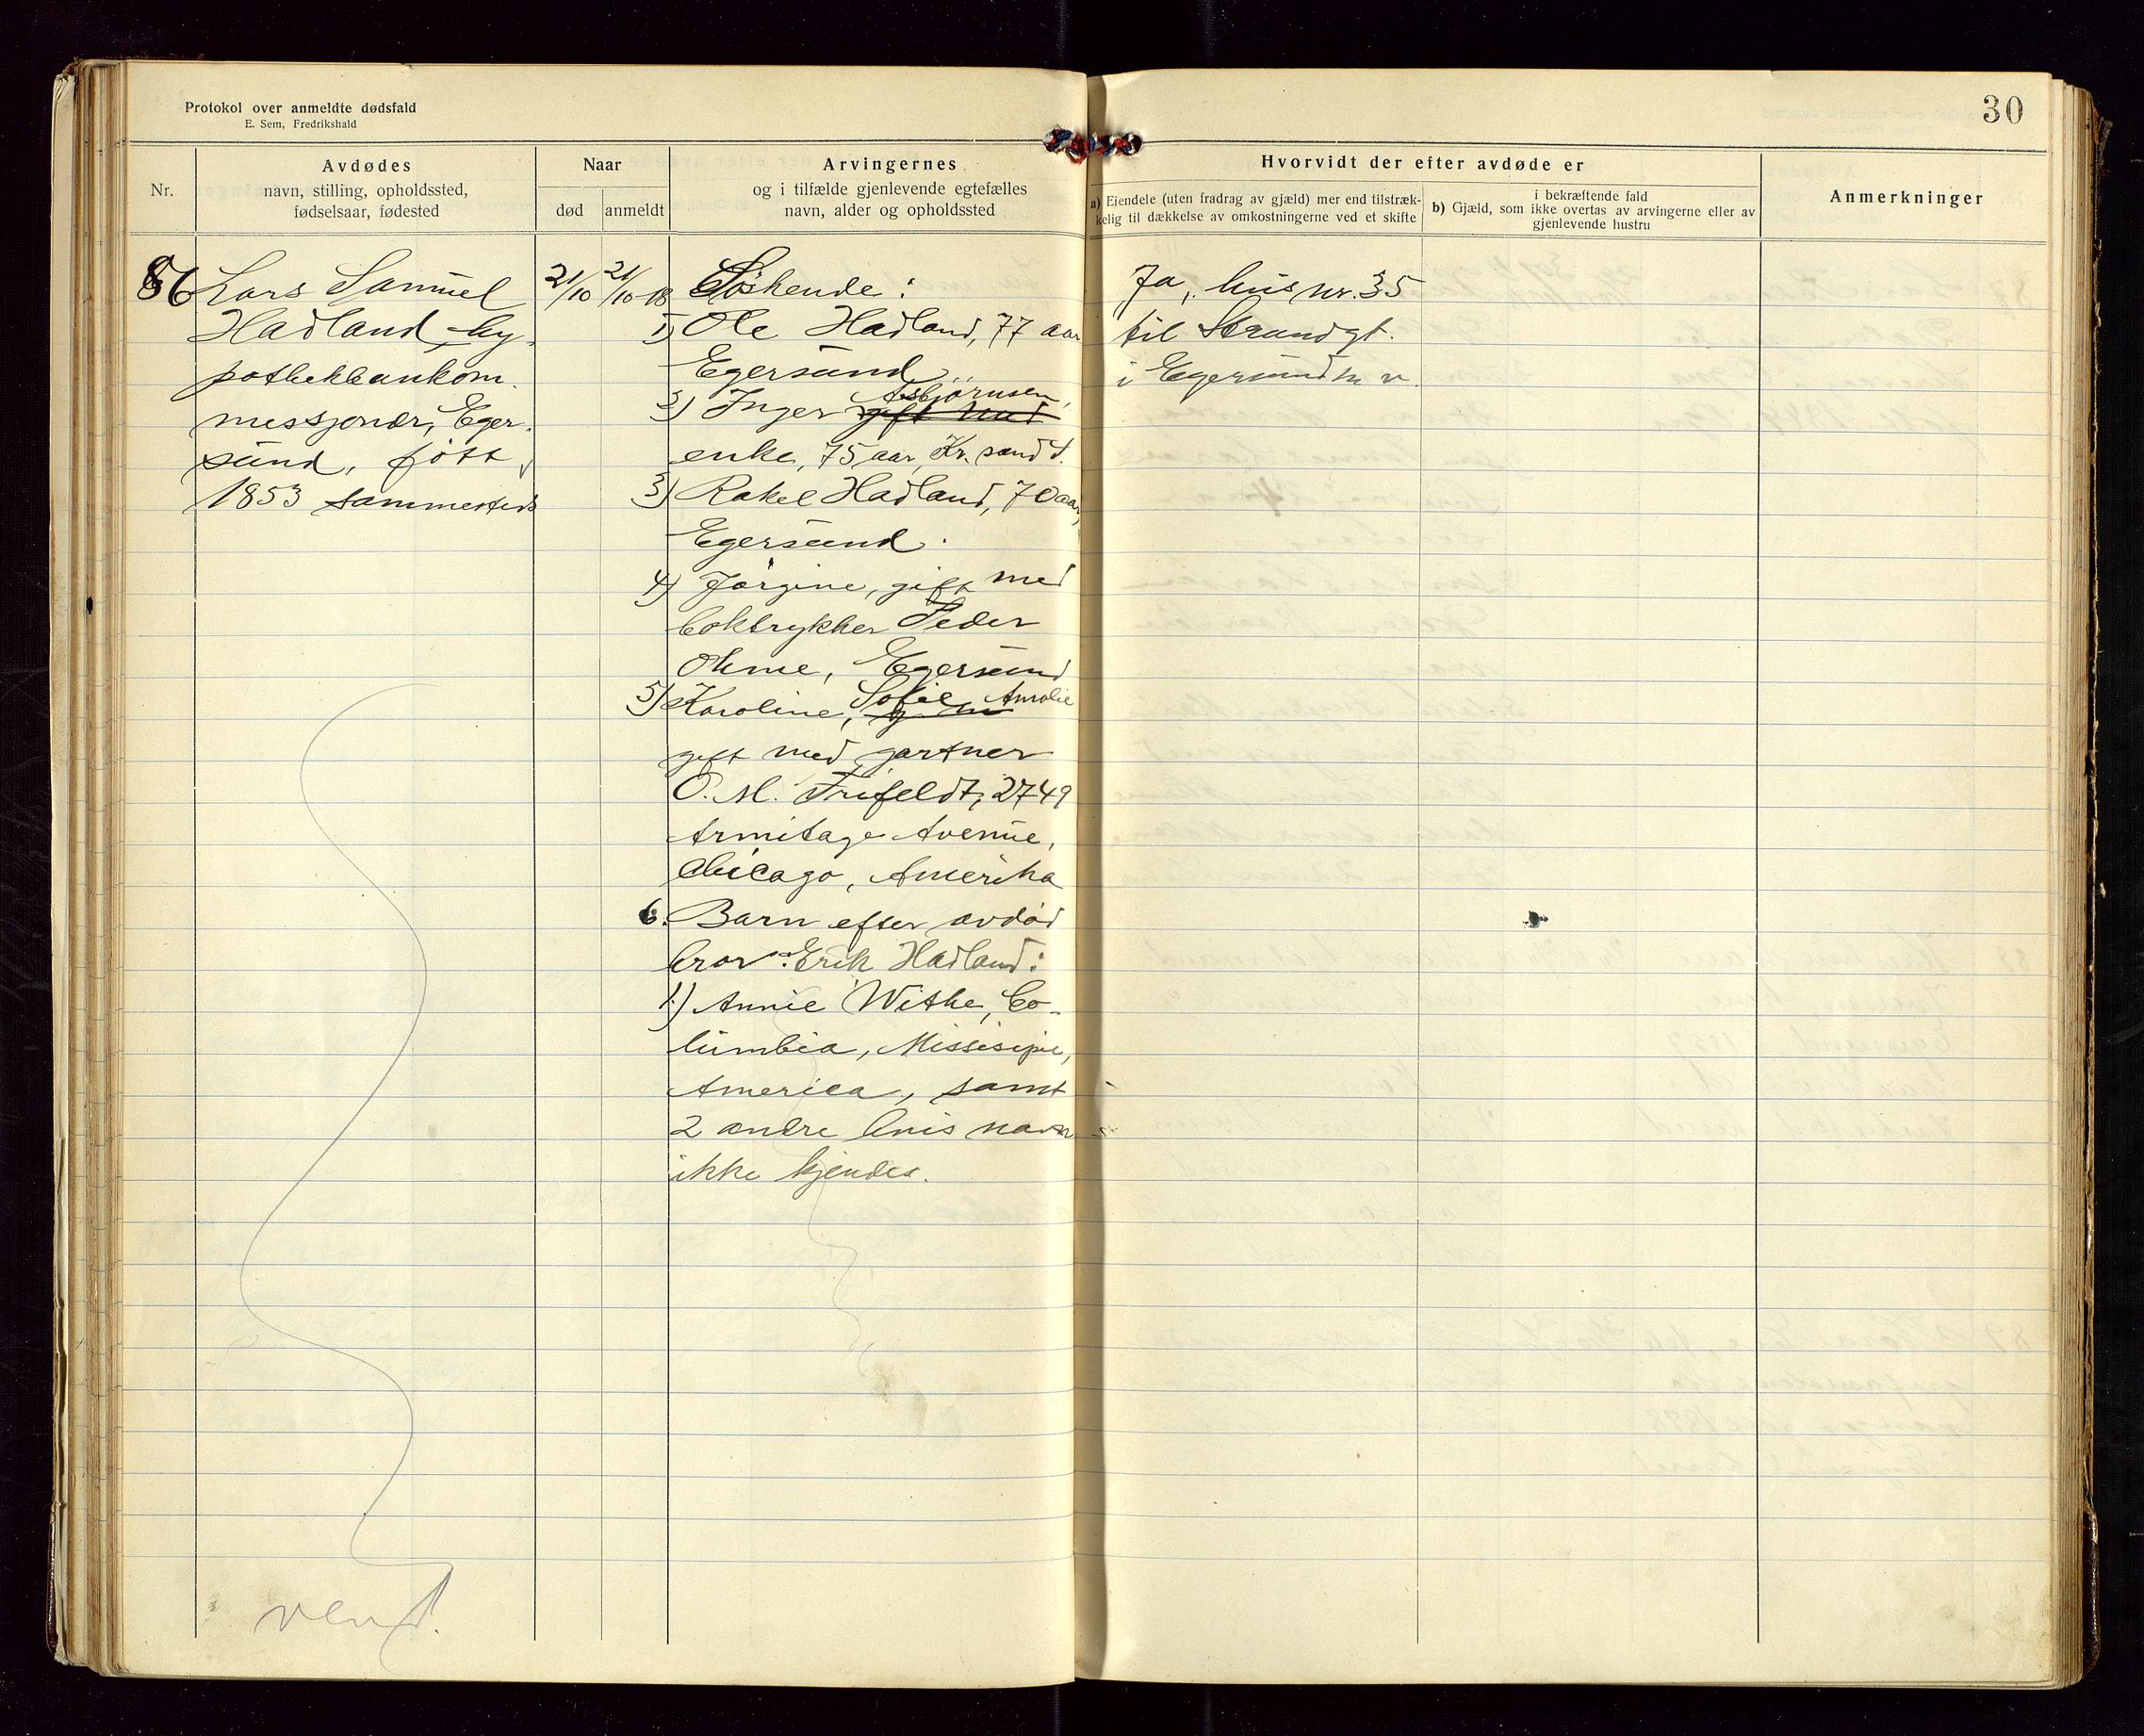 Protokol over anmeldte dødsfald
E. Sem, Fredrikshald
30
Nr.
Avdødes
navn, stilling, opholdssted,
fødselsaar, fødested
Naar
død
anmeldt
Arvingernes
og i tilfælde gjenlevende egtefælles
navn, alder og opholdssted
Hvorvidt der efter avdøde er
a) Eiendele (uten fradrag av gjæld) mer end tilstræk-
kelig til dækkelse av omkostningerne ved et skifte
i bekræftende fald
b) Gjæld, som ikke overtas av arvingerne eller av
gjenlevende hustru
Anmerkninger
86
Lars Samuel
Hadland, hy-
pothekbankom-
missjonær, Eger-
sund, født
1853 sammesteds
21/10
21/10-18
Søskende:
1) Ole Hadland, 77 aar
Egersund
Asbjørnsen,
2) Inger gift med
enke, 75 aar, Kr.sand S.
3) Rakel Hadland, 70 aar,
Egersund.
4) Jørgine, gift med
boktrykker Peder
Ohme, Egersund
5) Karoline, Sofie Amalie
gift med gartner
O. M. Frifeldt, 2749
Armitage Avenue,
Chicago, Amerika
6. Barn efter avdød
bror Erik Hadland:
1) Annie Withe, Co-
lumbia, Missisipie,
America, samt
2 andre hvis navn
ikke kjendes.
Ja, hus nr. 35
til Strandgt.
i Egersund m. v.
vend.